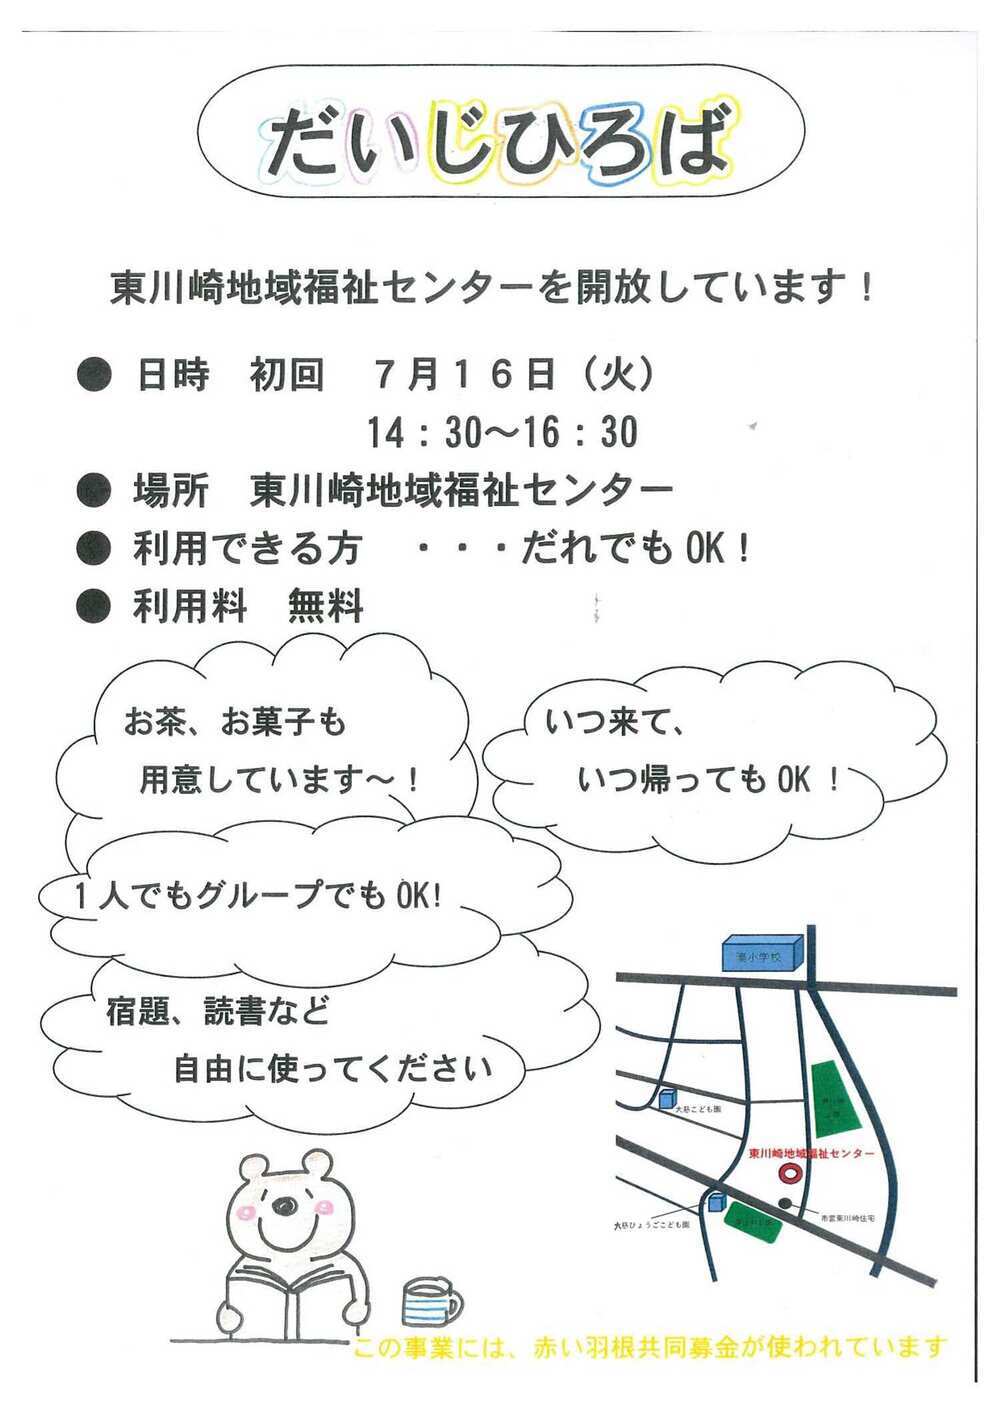 だいじひろば
東川崎地域福祉センターを開放しています！
● 日時　初回　７月１６日（火）
14：30～16：30
● 場所　東川崎地域福祉センター
● 利用できる方　・・・だれでもOK！
● 利用料　無料
お茶、お菓子も
用意しています～！
いつ来て、
いつ帰ってもOK！
1人でもグループでもOK!
宿題、読書など
自由に使ってください
湊小学校
大慈こども園
東川崎地域福祉センター
市営東川崎住宅
大慈ひょうごこども園
この事業には、赤い羽根共同募金が使われています